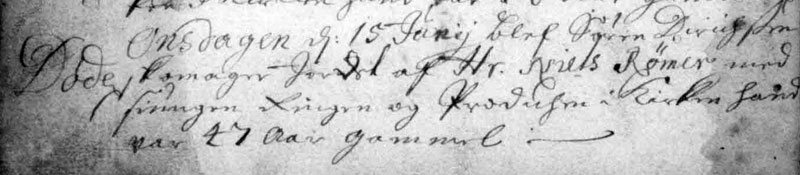 Onsdagen d: 15 Junij blef Sören Dirichsen
Döde, skomager Jordet af Hr. Niels Römer med
siungen Ringen og Prædichen i Kirken hand
var 47 Aar gammel